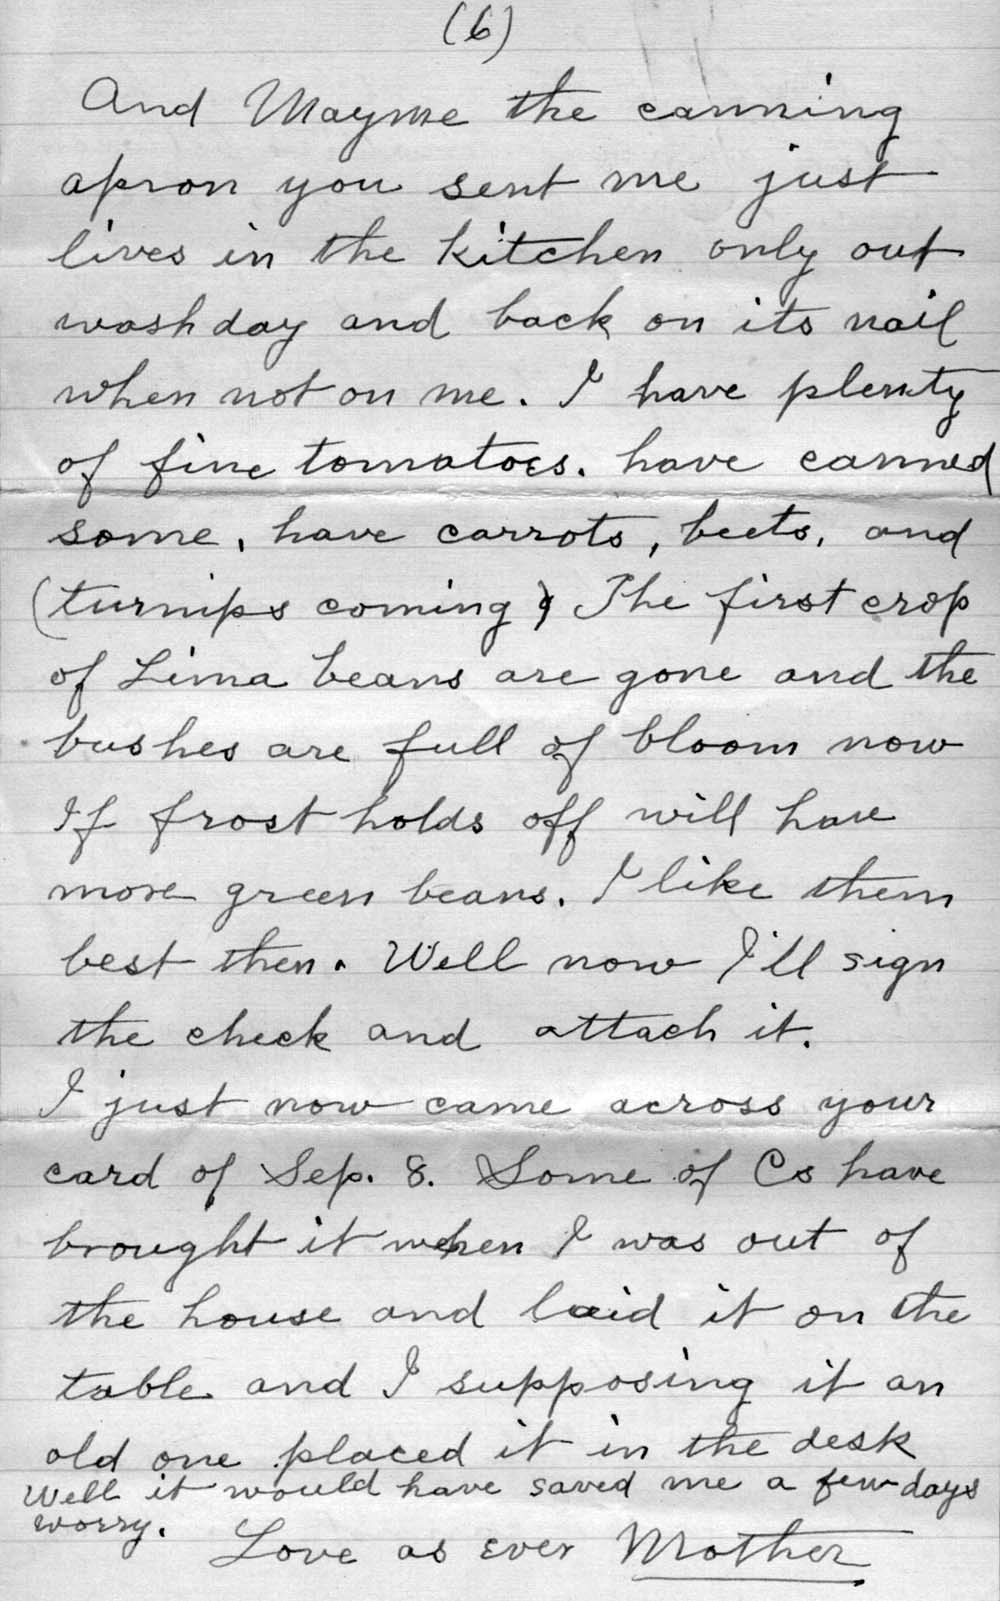 (6)
And Mayme the canning
apron you sent me just
lives in the kitchen only out
washday and back on its nail
when not on me. I have plenty
of fine tomatoes. have canned
some, have carrots, beets, and
(turnips coming) The first crop
of Lima beans are gone and the
bushes are full of bloom now
If frost holds off will have
more green beans. I like them
best then. Well now I'll sign
the check and attach it.
I just now came across your
card of Sep. 8. Some of Cs have
brought it when I was out of
the house and laid it on the
table and I supposing it an
old one placed it in the desk
Well it would have saved me a few days
worry.
Love as ever Mother